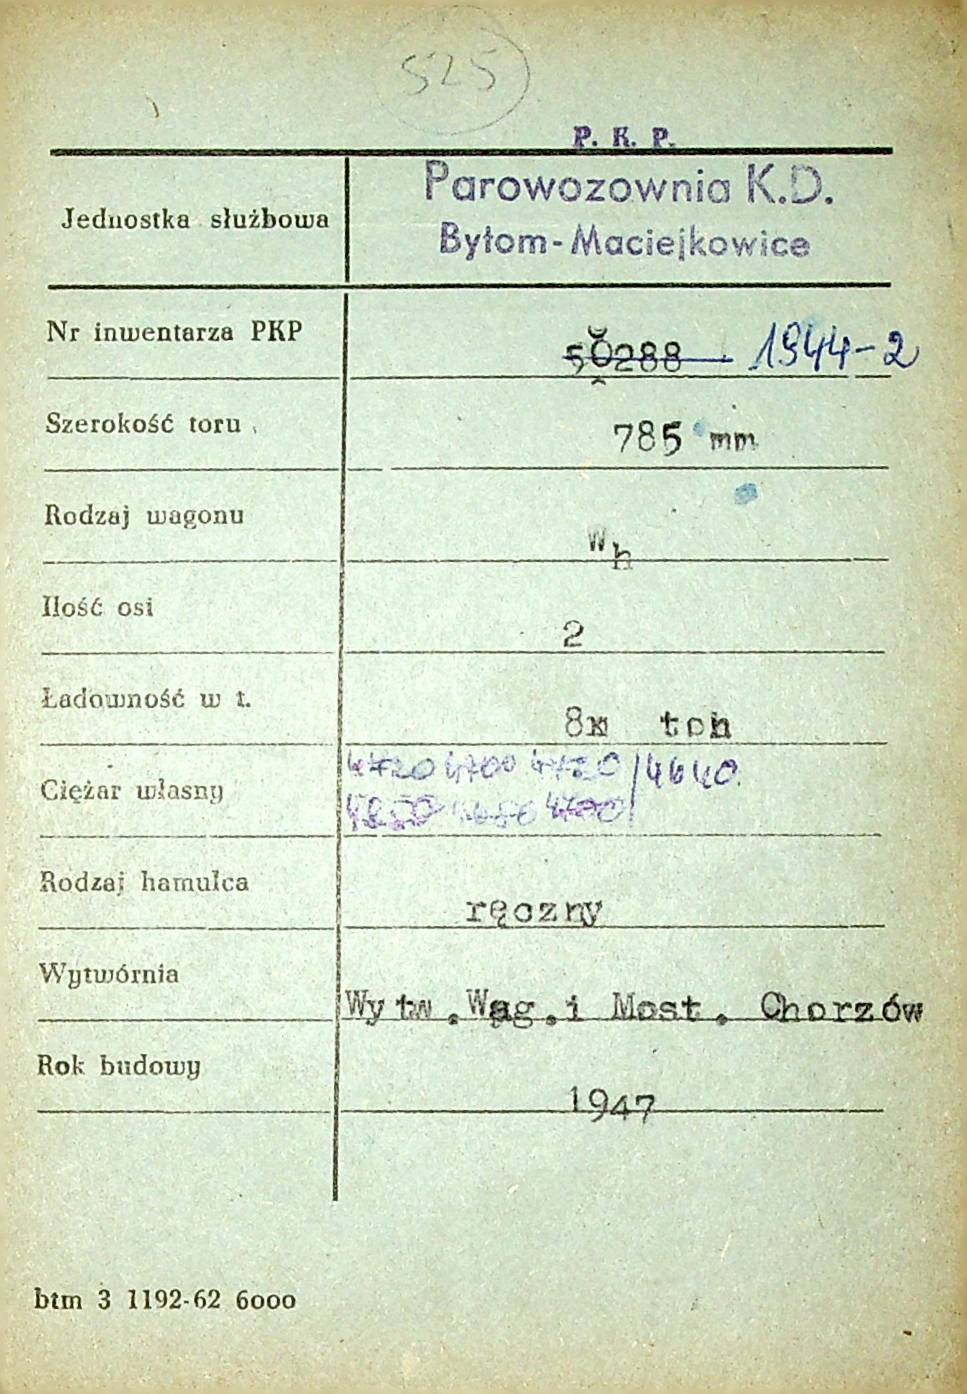 525
P. K. P.
Jednostka służbowa
Parowozownia K.D.
Bytom-Maciejkowice
Nr inwentarza PKP 50288 1944-2
Szerokość toru 785 mm
Rodzaj wagonu Wh
Ilość osi 2
Ładowność w t. 8 ton
Ciężar własny
4720 4700 4720 / 4640
4680 4700
Rodzaj hamulca ręczny
Wytwórnia Wytw.Wag.i Most. Chorzów
Rok budowy 1947
btm 3 1192-62 6000